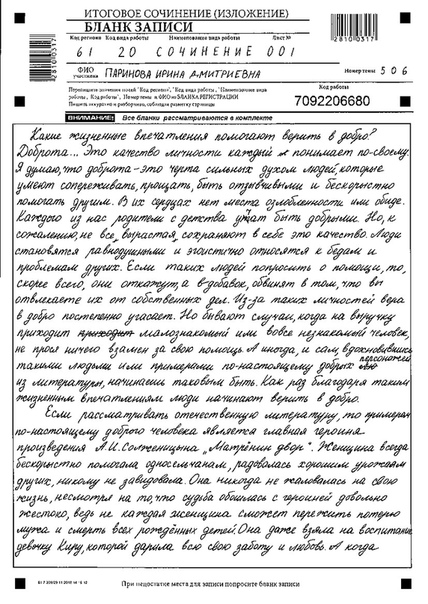 ИТОГОВОЕ СОЧИНЕНИЕ (ИЗЛОЖЕНИЕ)
БЛАНК ЗАПИСИ
Код региона Код вида работы Наименование вида работы Лист №
61 20 СОЧИНЕНИЕ 001
ФИО участника ПАРИНОВА ИРИНА ДМИТРИЕВНА Номер темы 506
Перепишите значения полей "Код региона", "Код вида работы", "Наименование вида
работы", "Код работы", "Номер темы" и ФИО из БЛАНКА РЕГИСТРАЦИИ
Пишите аккуратно и разборчиво, соблюдая разметку страницы
Код работы
7092206680
ВНИМАНИЕ! Все бланки рассматриваются в комплекте
Какие жизненные впечатления помогают верить в добро?
Доброта... Это качество личности каждый понимает по-своему.
Я думаю, что доброта - это черта сильных духом людей, которые
умеют сопереживать, прощать, быть отзывчивыми и бескорыстно
помогать другим. В их сердцах нет места озлобленности или обиде.
Каждого из нас родители с детства учат быть добрыми. Но, к
сожалению, не все, вырастая, сохраняют в себе это качество. Люди
становятся равнодушными и эгоистично относятся к бедам и
проблемам других. Если таких людей попросить о помощи, то,
скорее всего, они откажут, а в добавок, обвинят в том, что вы
отвлекаете их от собственных дел. Из-за таких личностей вера
в добро постепенно угасает. Но бывают случаи, когда на выручку
приходит приходит малознакомый или вовсе незнакомый человек,
не прося ничего взамен за свою помощь. А иногда, и сам, вдохновившись
такими людьми или примерами по-настоящему добрых персонажей
из литературы, начинаешь таковым быть. Как раз благодаря таким
жизненным впечатлениям люди начинают верить в добро.
Если рассматривать отечественную литературу, то примером
по-настоящему доброго человека является главная героиня
произведения А.И. Солженицына "Матрёнин двор". Женщина всегда
бескорыстно помогала односельчанам, радовалась хорошим урожаям
других, никому не завидовала. Она никогда не жаловалась на свою
жизнь, несмотря на то, что судьба обошлась с героиней довольно
жестоко, ведь не каждая женщина сможет пережить потерю
мужа и смерть всех рождённых детей. Она даже взяла на воспитание
девочку Киру, которой дарила всю свою заботу и любовь. А когда
При недостатке места для записи попросите бланк записи